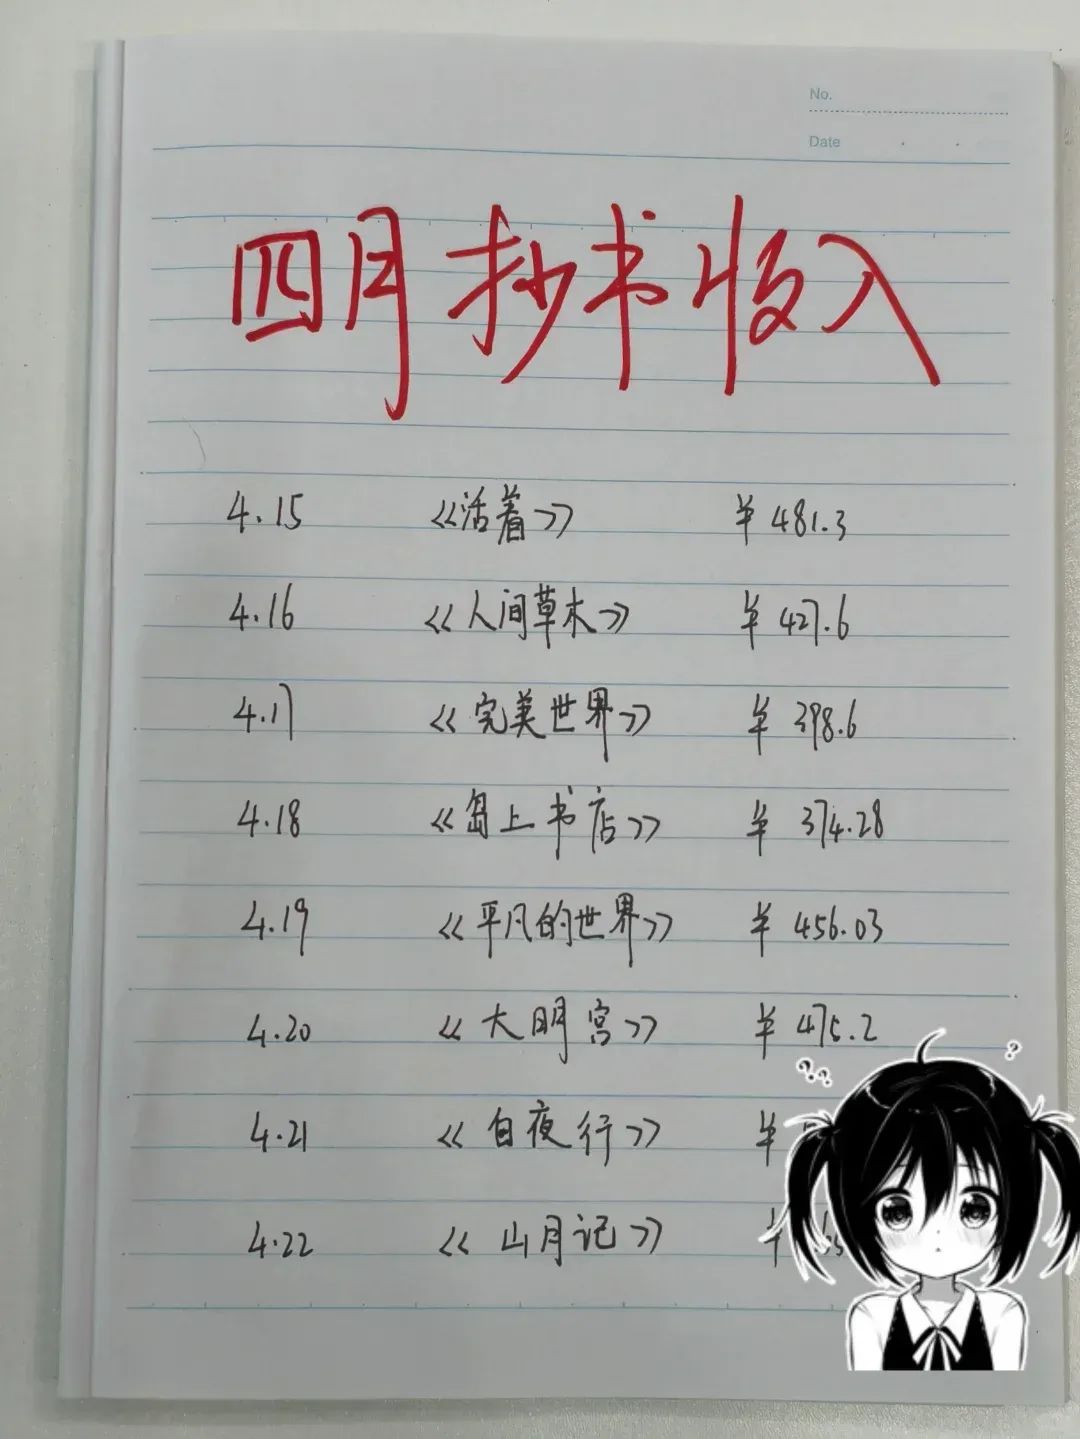 No.
Date
四月抄书收入
4.15 《活着》 ¥481.3
4.16 《人间草木》 ¥427.6
4.17 《完美世界》 ¥398.6
4.18 《岛上书店》 ¥374.28
4.19 《平凡的世界》 ¥456.03
4.20 《大明宫》 ¥475.2
4.21 《白夜行》 ¥
4.22 《山月记》 ¥